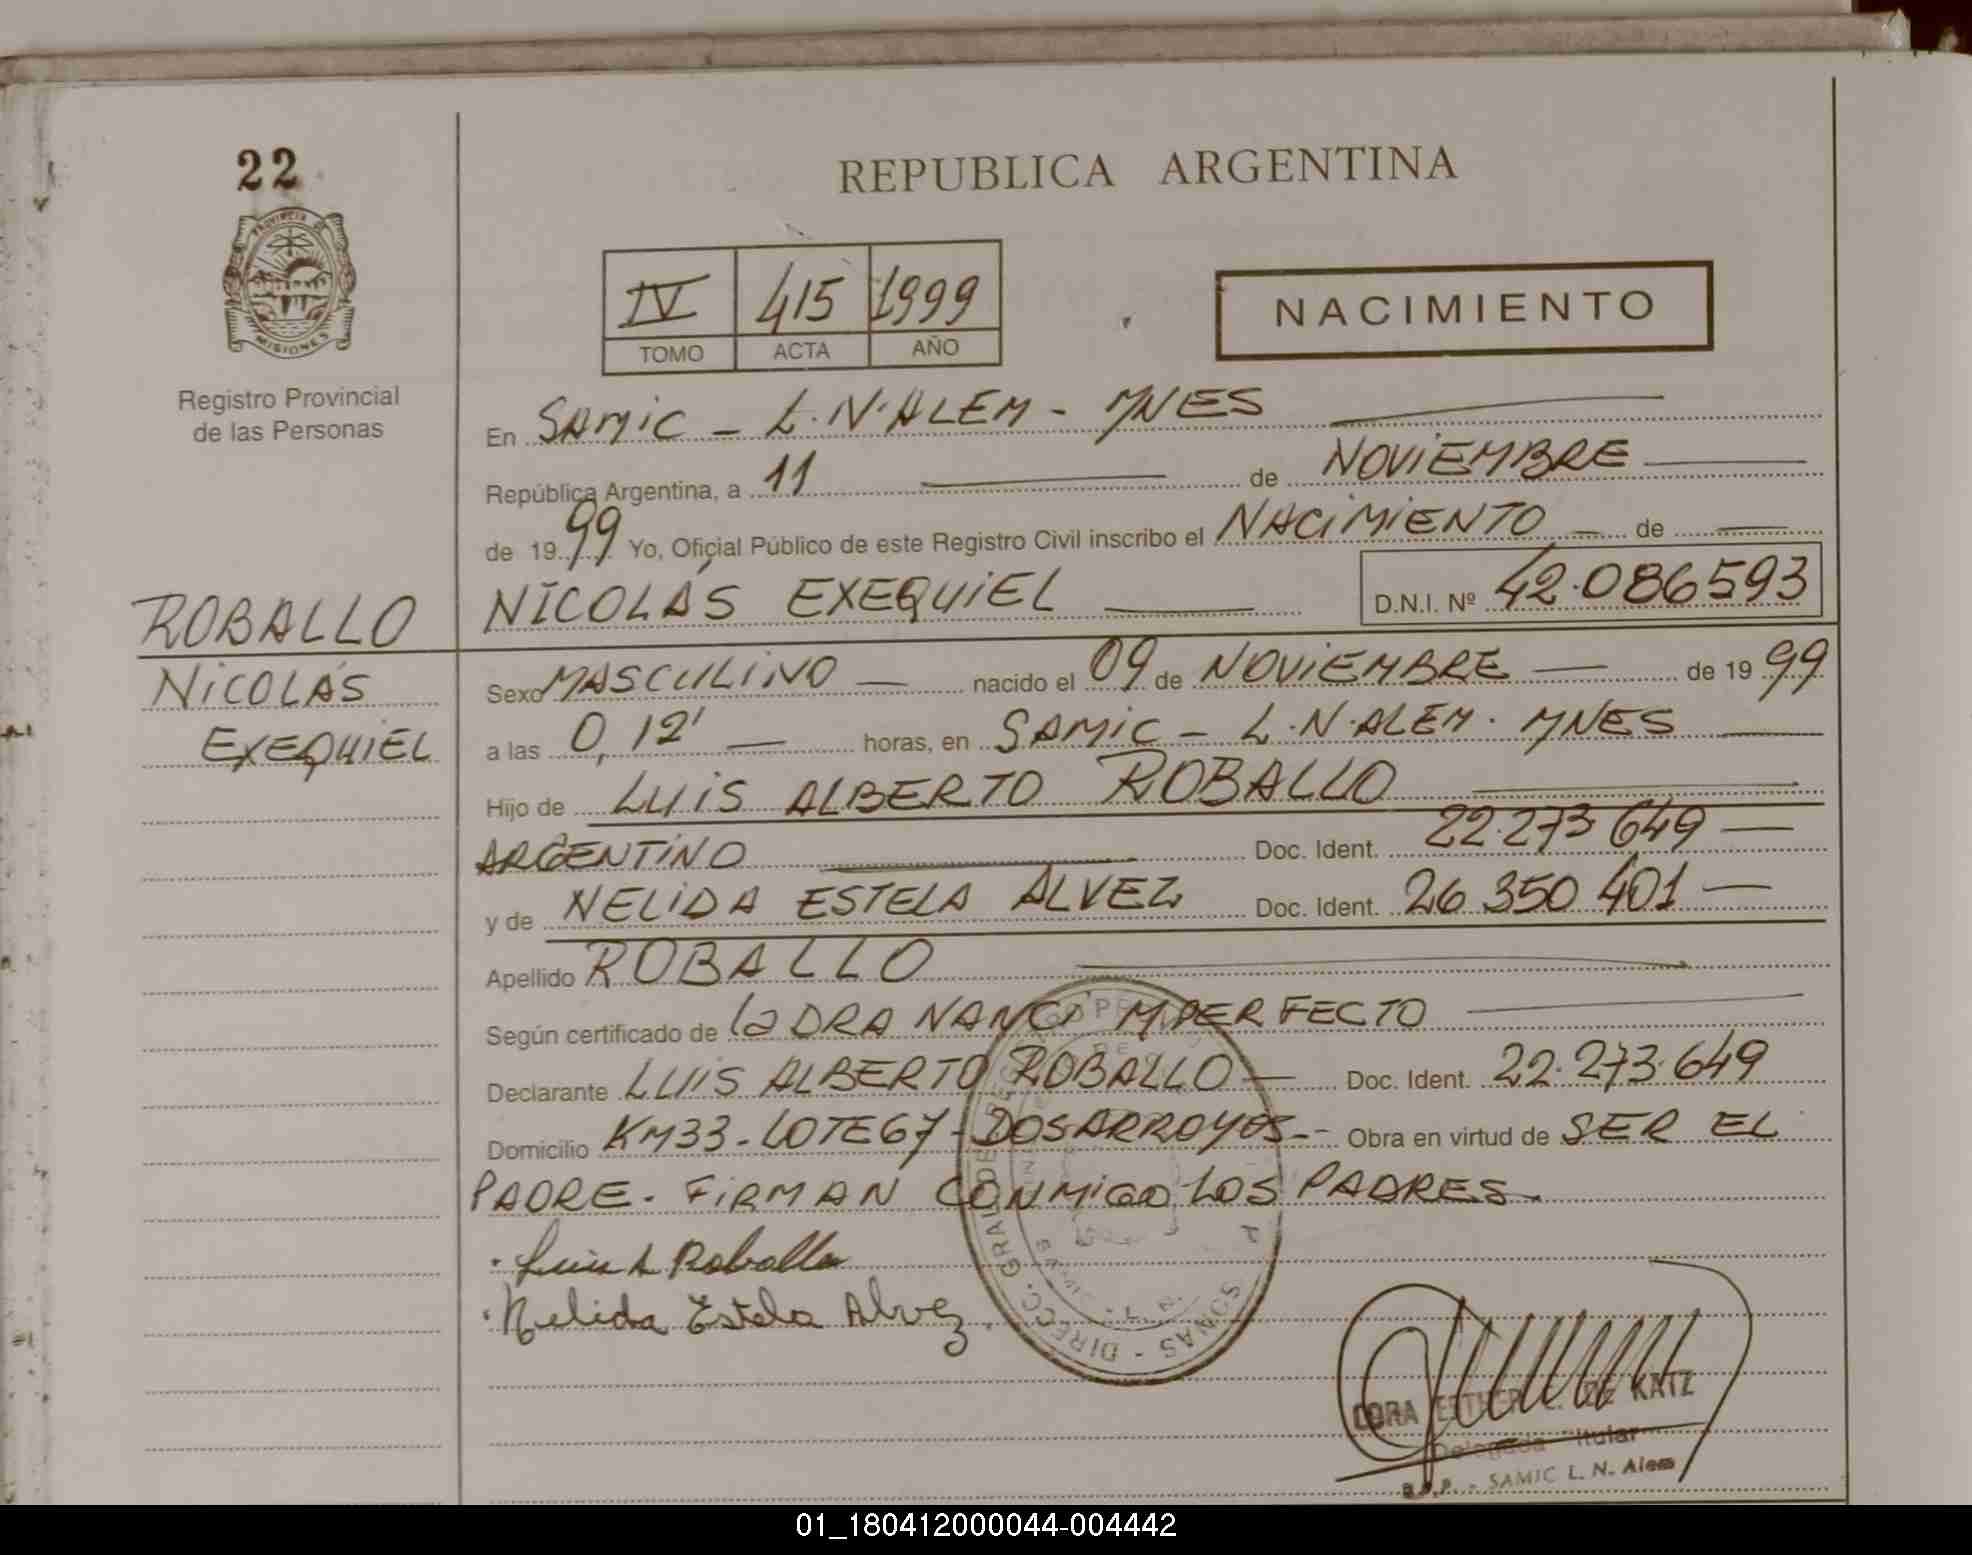 22
PROVINCIA DE
MISIONES
Registro Provincial
de las Personas
REPUBLICA ARGENTINA
IV 415 1999
TOMO ACTA AÑO
NACIMIENTO
En SAMIC - L.N.ALEM - MNES
República Argentina, a 11 de NOVIEMBRE
de 1999 Yo, Oficial Público de este Registro Civil inscribo el NACIMIENTO de
NICOLÁS EXEQUIEL D.N.I. Nº 42.086593
ROBALLO
NICOLÁS
EXEQUIEL
Sexo MASCULINO nacido el 09 de NOVIEMBRE de 1999
a las 0,12' horas, en SAMIC - L.N.ALEM. MNES
Hijo de LUIS ALBERTO ROBALLO
ARGENTINO Doc. Ident. 22.273.649
y de NELIDA ESTELA ALVEZ Doc. Ident. 26.350 401
Apellido ROBALLO
Según certificado de la DRA NANCI M.PERFECTO
Declarante LUIS ALBERTO ROBALLO Doc. Ident. 22.273.649
Domicilio KM33-LOTE67-DOSARROYOS-- Obra en virtud de SER EL
PADRE. FIRMAN CONMIGO LOS PADRES.
Luis A Roballo
Nelida Estela Alvez
DIRECC. GRAL. DE
DE KATZ
Delegada Titular
SAMIC L. N. Alem
01_180412000044-004442